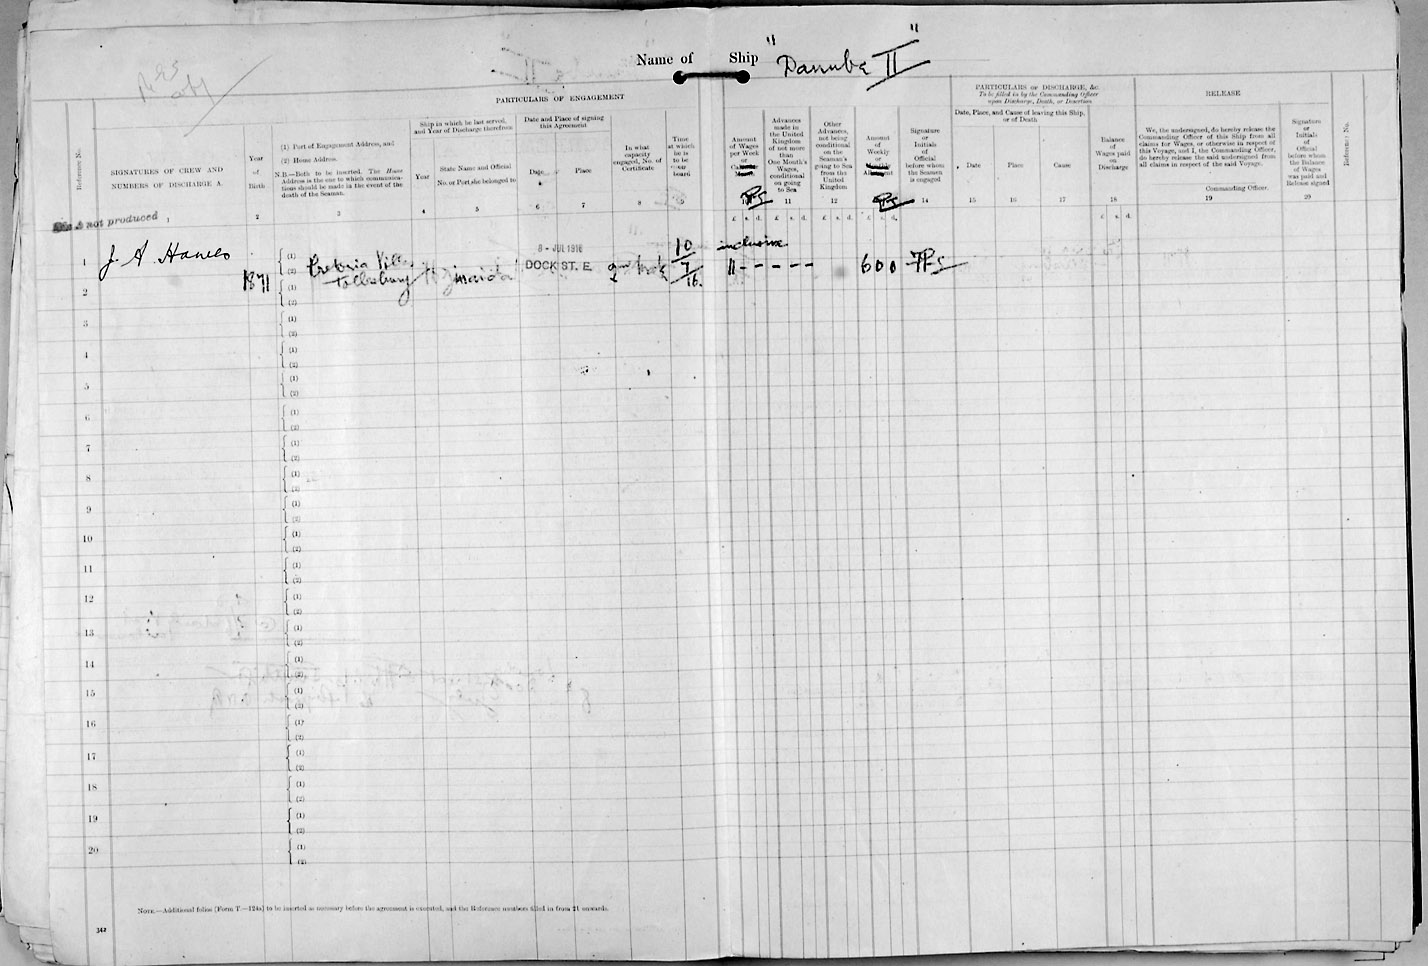 Name of Ship "Danube II"
PARTICULARS OF ENGAGEMENT
PARTICULARS OF DISCHARGE, &c.
To be filled in by the Commanding Officer
upon Discharge, Death, or Desertion
RELEASE
Reference N.
SIGNATURES OF CREW AND
NUMBERS OF DISCHARGE A.
Year
of
Birth
(1) Port of Engagement Address, and
(2) Home Address.
N.B.—Both to be inserted. The Home
Address is the one to which communica-
tions should be made in the event of the
death of the Seaman.
Ship in which he last served,
and Year of Discharge therefrom
Year
State Name and Official
No. or Port she belonged to
Date and Place of signing
this Agreement
Date
Place
In what
capacity
engaged, No. of
Certificate
Time
at which
he is
to be
on
board
Amount
of Wages
per Week
or
Calendar
Month
Advances
made in
the United
Kingdom
of not more
than
One Month's
Wages,
conditional
on going
to Sea
Other
Advances,
not being
conditional
on the
Seaman's
going to Sea
from the
United
Kingdom
Amount
of
Weekly
or
Monthly
Allotment
Signature
or
Initials
of
Official
before whom
the Seaman
is engaged
Date, Place, and Cause of leaving this Ship,
or of Death
Date
Place
Cause
Balance
of
Wages paid
on
Discharge
We, the undersigned, do hereby release the
Commanding Officer of this Ship from all
claims for Wages, or otherwise in respect of
this Voyage, and I, the Commanding Officer,
do hereby release the said undersigned from
all claims in respect of the said Voyage.
Commanding Officer.
Signature
or
Initials
of
Official
before whom
the Balance
of Wages
was paid and
Release signed
Reference No.
1 2 3 4 5 6 7 8 9 10 11 12 13 14 15 16 17 18 19 20
£ s. d. £ s. d. £ s. d. £ s. d. £ s. d.
not produced
1 J. A. Hawes 1871 (1) Pretoria Villa
(2) Tollesbury
8 - JUL 1916
DOCK ST. E.
10/7/16.
inclusive
" - - - - -
6 0 0
2 (1)
(2)
3 (1)
(2)
4 (1)
(2)
5 (1)
(2)
6 (1)
(2)
7 (1)
(2)
8 (1)
(2)
9 (1)
(2)
10 (1)
(2)
11 (1)
(2)
12 (1)
(2)
13 (1)
(2)
14 (1)
(2)
15 (1)
(2)
16 (1)
(2)
17 (1)
(2)
18 (1)
(2)
19 (1)
(2)
20 (1)
(2)
NOTE.—Additional folios [Form T.—124a] to be inserted as necessary before the agreement is executed, and the Reference numbers filled in from 21 onwards.
342